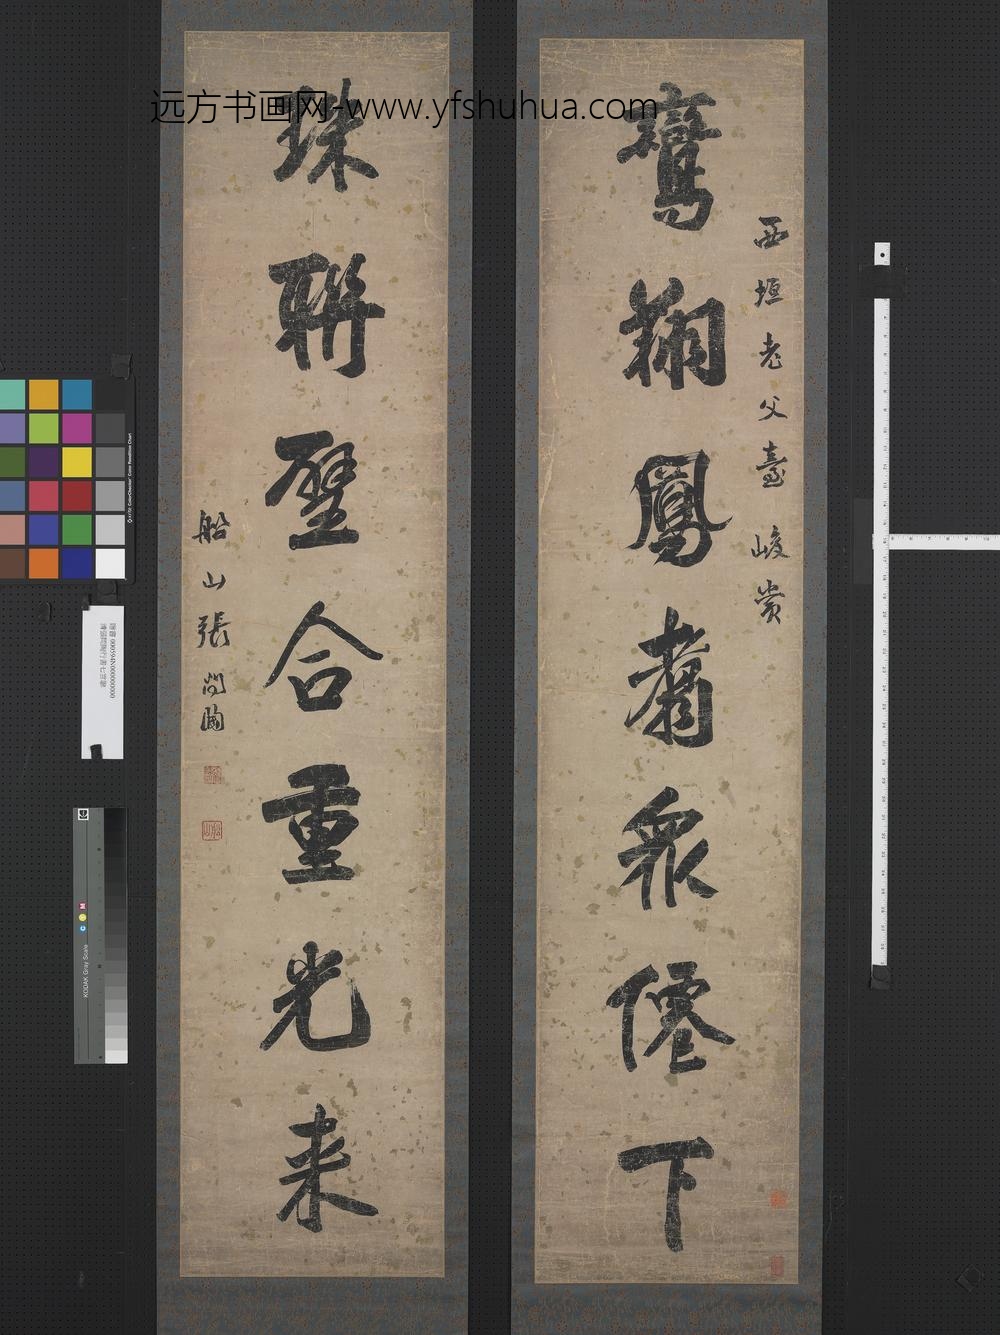 远方书画网-www.yfshuhua.com
西垣老父臺 峻賞
鸞翔鳳翥衆僊下
珠聯璧合重光来
船山張問陶
KODAK Gray Scale
C Y M